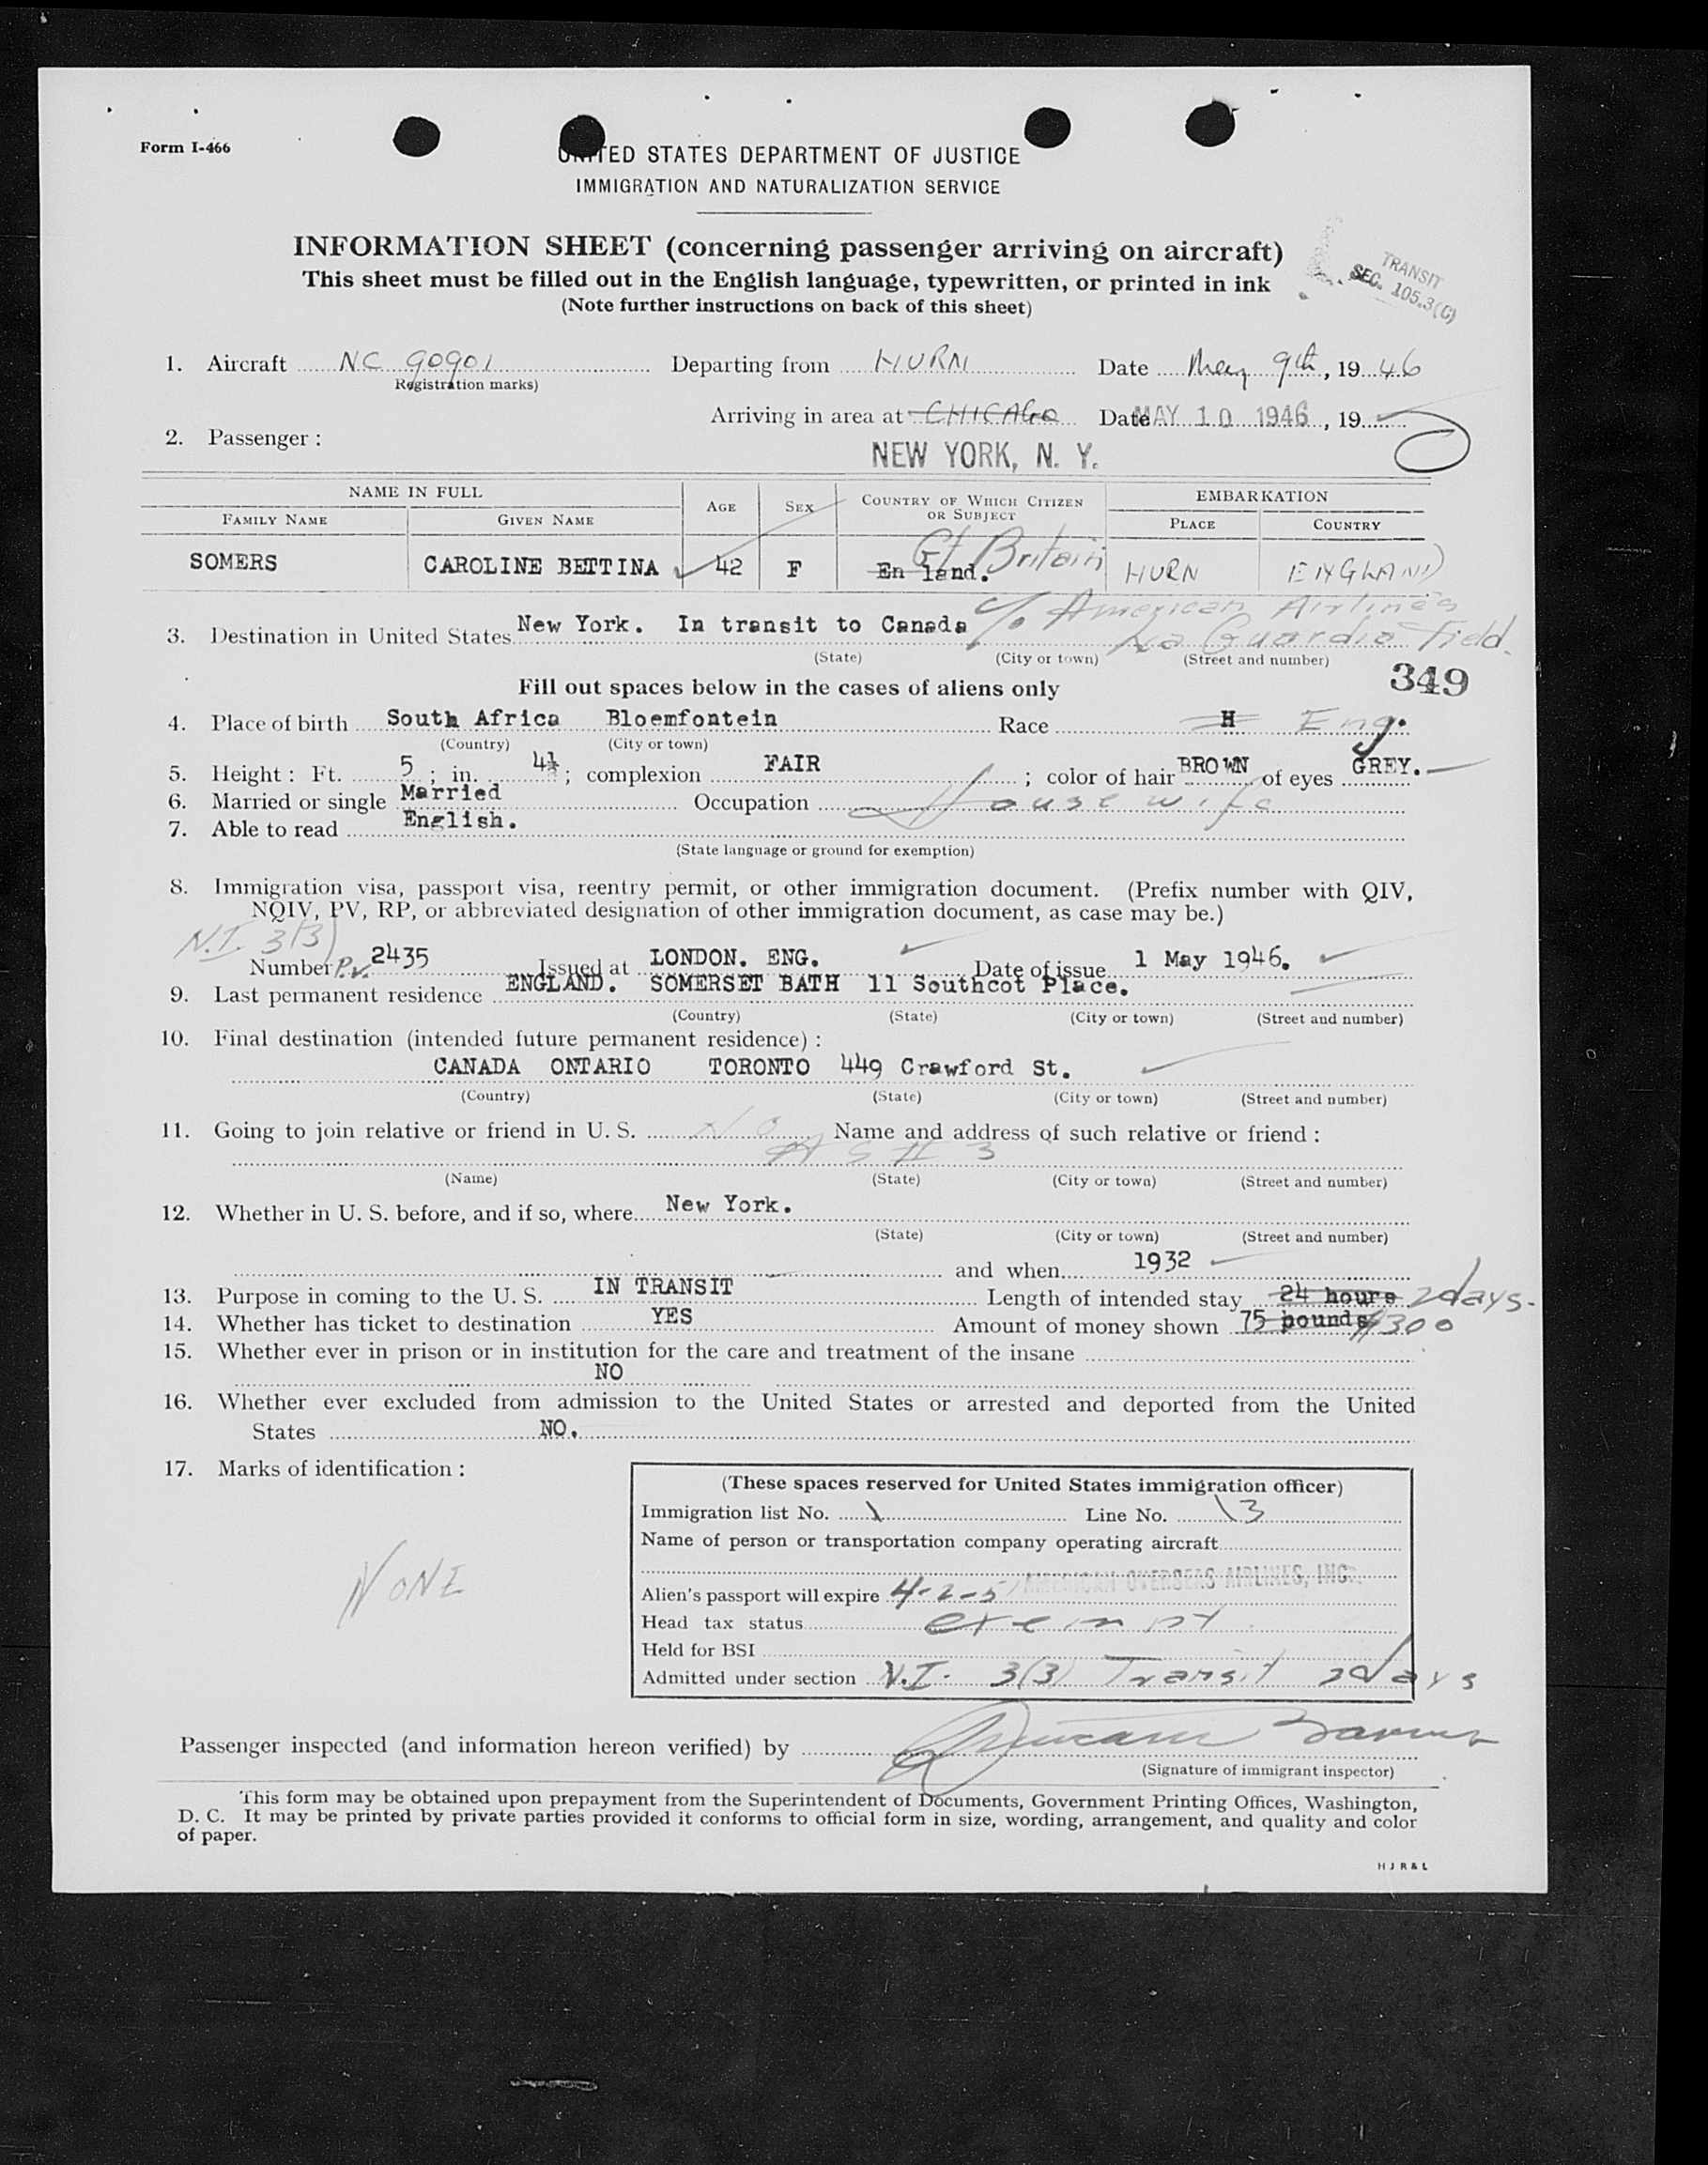 Form I-466
UNITED STATES DEPARTMENT OF JUSTICE
IMMIGRATION AND NATURALIZATION SERVICE
INFORMATION SHEET (concerning passenger arriving on aircraft)
This sheet must be filled out in the English language, typewritten, or printed in ink
(Note further instructions on back of this sheet)
TRANSIT
SEC. 105.3(C)
1. Aircraft NC 90901 Departing from HURN Date May 9th, 1946
(Registration marks)
Arriving in area at CHICAGO Date MAY 10 1946, 19
2. Passenger :
NEW YORK, N. Y.
NAME IN FULL AGE SEX COUNTRY OF WHICH CITIZEN OR SUBJECT EMBARKATION
FAMILY NAME GIVEN NAME PLACE COUNTRY
Gt Britain
SOMERS CAROLINE BETTINA 42 F En land. HURN ENGLAND
c/o American Airlines
3. Destination in United States New York. In transit to Canada La Guardia Field.
(State) (City or town) (Street and number)
Fill out spaces below in the cases of aliens only 349
4. Place of birth South Africa Bloemfontein Race H Eng.
(Country) (City or town)
5. Height : Ft. 5 ; in. 4½ ; complexion FAIR ; color of hair BROWN of eyes GREY.
6. Married or single Married Occupation Housewife
7. Able to read English.
(State language or ground for exemption)
8. Immigration visa, passport visa, reentry permit, or other immigration document. (Prefix number with QIV,
NQIV, PV, RP, or abbreviated designation of other immigration document, as case may be.)
N.I. 3(3)
Number P.V. 2435 Issued at LONDON. ENG. Date of issue 1 May 1946.
9. Last permanent residence ENGLAND. SOMERSET BATH 11 Southcot Place.
(Country) (State) (City or town) (Street and number)
10. Final destination (intended future permanent residence) :
CANADA ONTARIO TORONTO 449 Crawford St.
(Country) (State) (City or town) (Street and number)
11. Going to join relative or friend in U. S. NO Name and address of such relative or friend :
AS # 3
(Name) (State) (City or town) (Street and number)
12. Whether in U. S. before, and if so, where New York.
(State) (City or town) (Street and number)
and when 1932
13. Purpose in coming to the U. S. IN TRANSIT Length of intended stay 24 hours 2 days.
14. Whether has ticket to destination YES Amount of money shown 75 pounds $300
15. Whether ever in prison or in institution for the care and treatment of the insane
NO
16. Whether ever excluded from admission to the United States or arrested and deported from the United
States NO.
17. Marks of identification :
NONE
(These spaces reserved for United States immigration officer)
Immigration list No. 1 Line No. 13
Name of person or transportation company operating aircraft
AMERICAN OVERSEAS AIRLINES, INC.
Alien's passport will expire 4-2-51
Head tax status exempt
Held for BSI
Admitted under section N.I. 3(3) Transit 2 days
Passenger inspected (and information hereon verified) by
(Signature of immigrant inspector)
This form may be obtained upon prepayment from the Superintendent of Documents, Government Printing Offices, Washington,
D. C. It may be printed by private parties provided it conforms to official form in size, wording, arrangement, and quality and color
of paper.
H J R & L